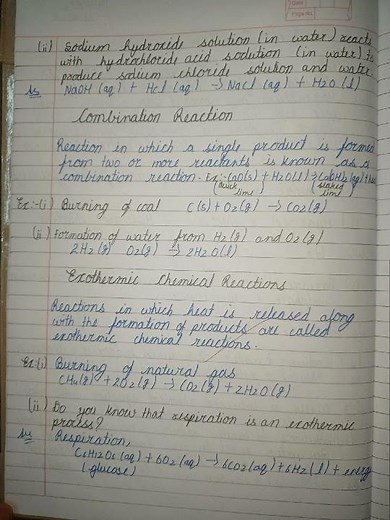 (ii) Sodium hydroxide solution (in water) reacts
with hydrochloric acid solution (in water) to
produce sodium chloride solution and water
Ans NaOH (aq) + HCl (aq) → NaCl (aq) + H2O (l)
Combination Reaction
Reaction in which a single product is formed
from two or more reactants is known as a
combination reaction. Ex:- CaO(s) + H2O(l) → Ca(OH)2(aq) + heat
(quick lime) (slaked lime)
Ex:-(i) Burning of coal C(s) + O2(g) → CO2(g)
(ii) Formation of water from H2(g) and O2(g)
2H2(g) O2(g) → 2H2O(l)
Exothermic Chemical Reactions
Reactions in which heat is released along
with the formation of products are called
exothermic chemical reactions.
Ex:(i) Burning of natural gas
CH4(g) + 2O2(g) → CO2(g) + 2H2O(g)
(ii) Do you know that respiration is an exothermic
process?
Ans Respiration,
C6H12O6(aq) + 6O2(aq) → 6CO2(aq) + 6H2(l) + energy
(glucose)